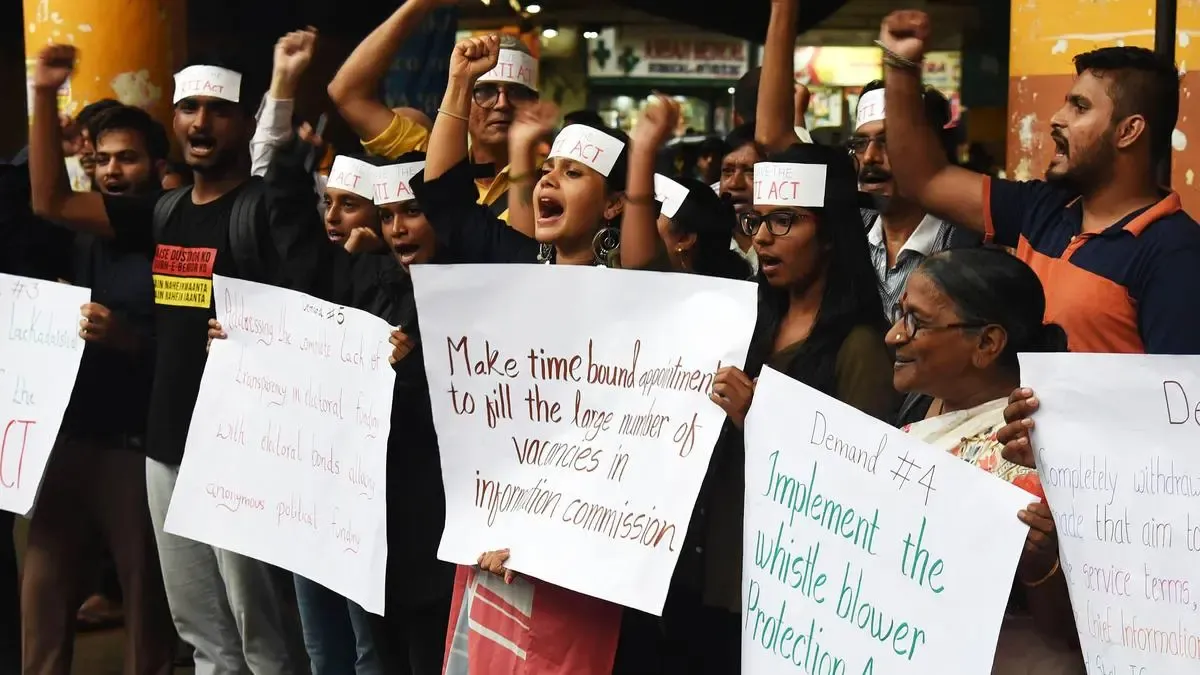 RTI ACT
RTI ACT
ACT
ACT
ACT
TI ACT
THE
ACT
#3
Lackadaisical
the
ACT
Demand #5
Addressing the complete lack of
transparency in electoral funding
with electoral bonds allowing
anonymous political funding
Make time bound appointment
to fill the large number of
vacancies in
information commission
Demand #4
Implement the
whistle blower
Protection A
D
Completely withdraw
made that aim to
service terms,
Chief Information